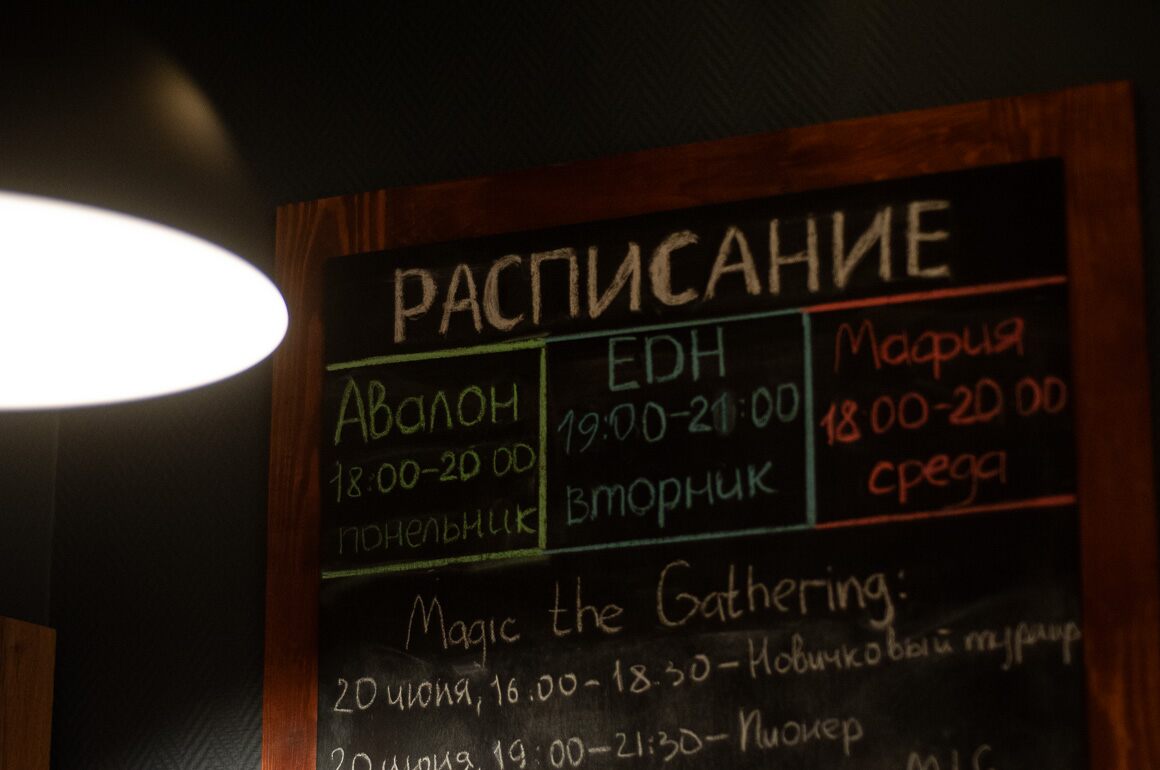 РАСПИСАНИЕ
АВАЛОН
18:00-20 00
понельник
EDH
19:00-21:00
вторник
Мафия
18 00-20 00
среда
Magic the Gathering:
20 июня, 16.00-18.30-Новичковый турнир
20 июня, 19:00-21:30-Пионер